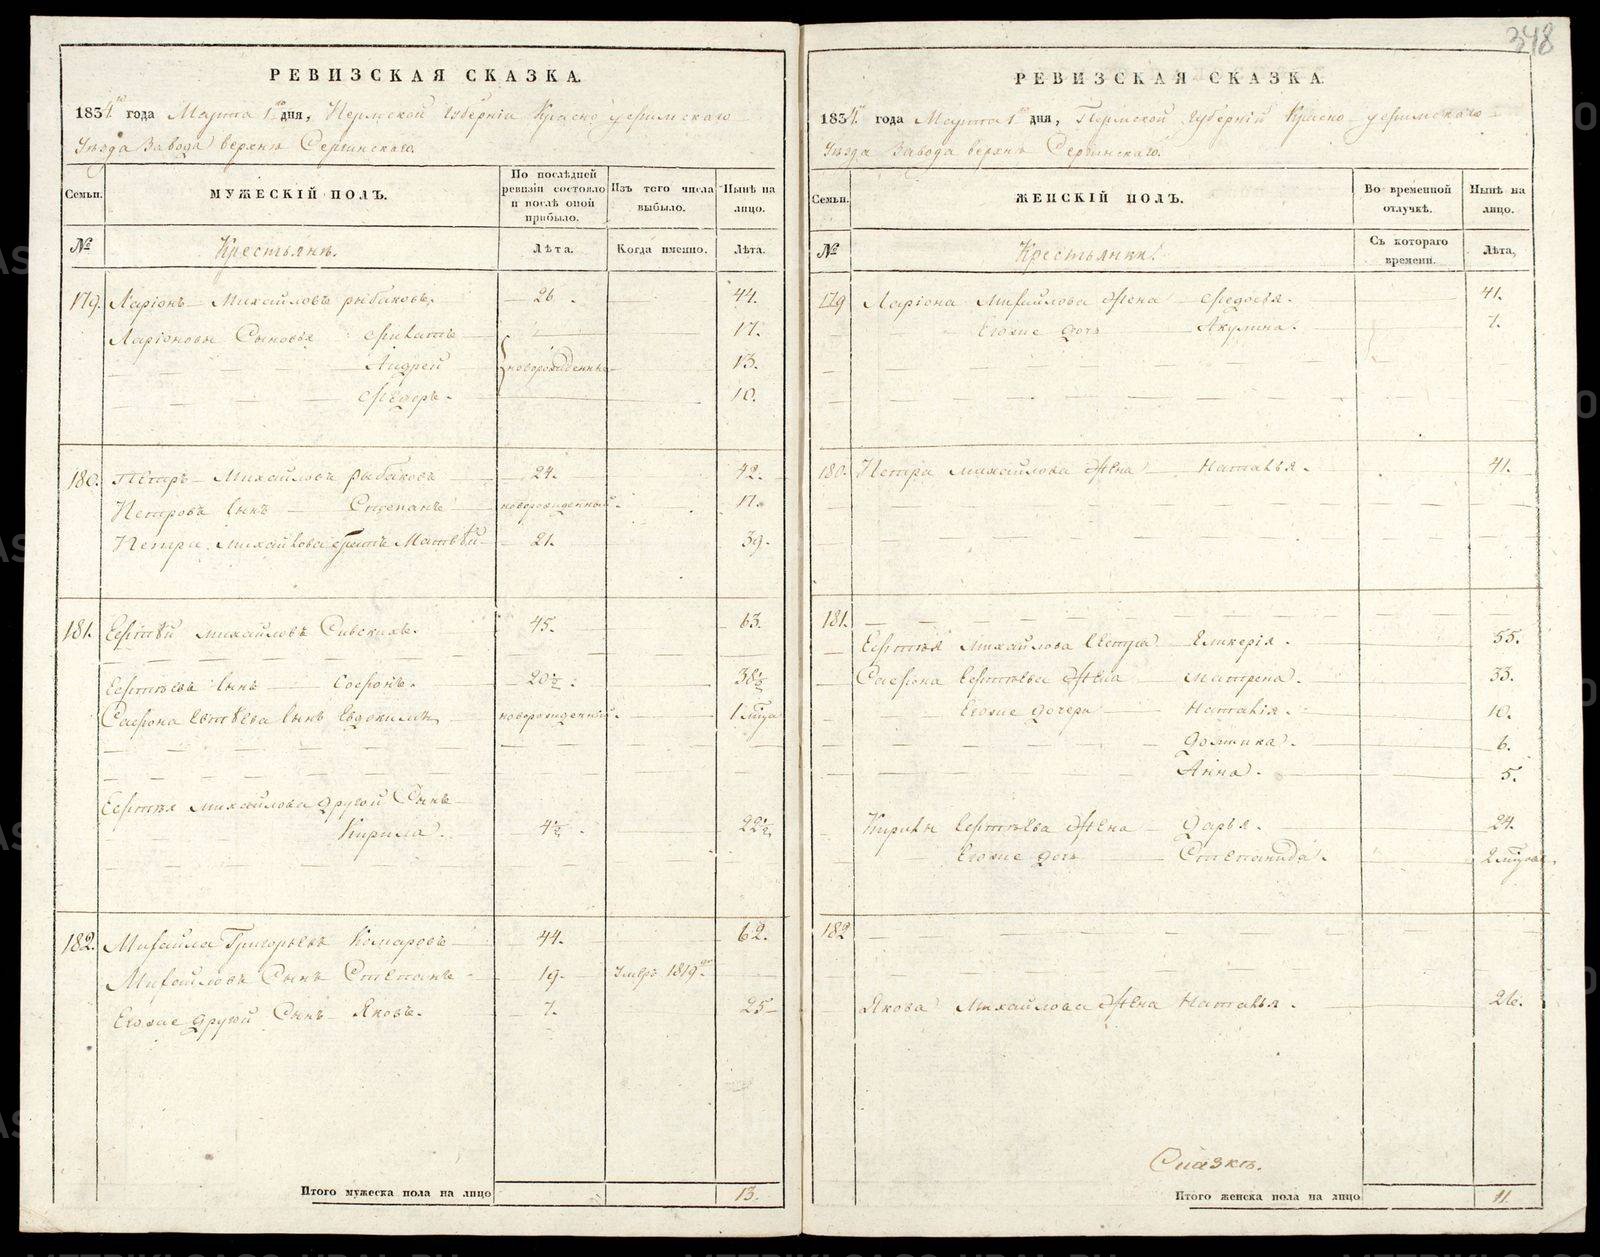 348
РЕВИЗСКАЯ СКАЗКА.
1834го года Марта 1го дня, Пермской Губерніи Красно уфимскаго
Уѣзда Завода верхнѣ Сергинскаго.
Семьи.
МУЖЕСКІЙ ПОЛЪ.
По послѣдней ревизіи состояло и послѣ оной прибыло.
Изъ того числа выбыло.
Нынѣ на лицо.
№
Крестьянѣ.
Лѣта.
Когда именно.
Лѣта.
179. Ларіонъ Михайловъ рыбаковъ. 26. 44.
Ларіоновы Сыновья Филатъ 17.
Андрей новорожденные 13.
Федоръ. 10.
180. Петръ Михайловъ рыбаковъ 24. 42.
Петровъ Сынъ Степанъ новорожденный. 17.
Петра Михайлова братъ Матвѣй 21. 39.
181. Евфтѣй Михайловъ Сивскихъ. 45. 63.
Евфтѣевъ Сынъ Софонъ. 20½. 38½
Сафона Евтѣева Сынъ Евдокимъ новорожденный. 1 мѣца
Евфтѣя Михайлова другой Сынъ
Кирила. 4½. 22½
182. Михайла Григорьевъ Комаровъ 44. 62.
Михайловъ Сынъ Степанъ 19. Умеръ 1819го
Егоже другой Сынъ Яковъ. 7. 25
Итого мужеска пола на лицо 13.
РЕВИЗСКАЯ СКАЗКА
1834го года Марта 1го дня, Пермской Губерніи Красно уфимскаго
Уѣзда Завода верхнѣ Сергинскаго.
Семьи.
ЖЕНСКІЙ ПОЛЪ.
Во временной отлучкѣ.
Нынѣ на лицо.
№
Крестьянки.
Съ котораго времени.
Лѣта,
179 Ларіона Михайлова Жена Федосья. 41.
Егоже дочь Акулина. 7.
180. Петра михайлова Жена Наталья. 41.
181.
Евфтѣя Михайлова Сестра Гликерія. 55.
Сафона Евфтѣева Жена матрена. 33.
Егоже дочери Наталія. 10.
домника. 6.
Анна. 5.
Кирилы Евфтѣева Жена дарья. 24.
Егоже дочь Степанида. 2 мѣсяца.
182
Якова Михайлова Жена Наталья. 26.
Сказкѣ.
Итого женска пола на лицо 11.